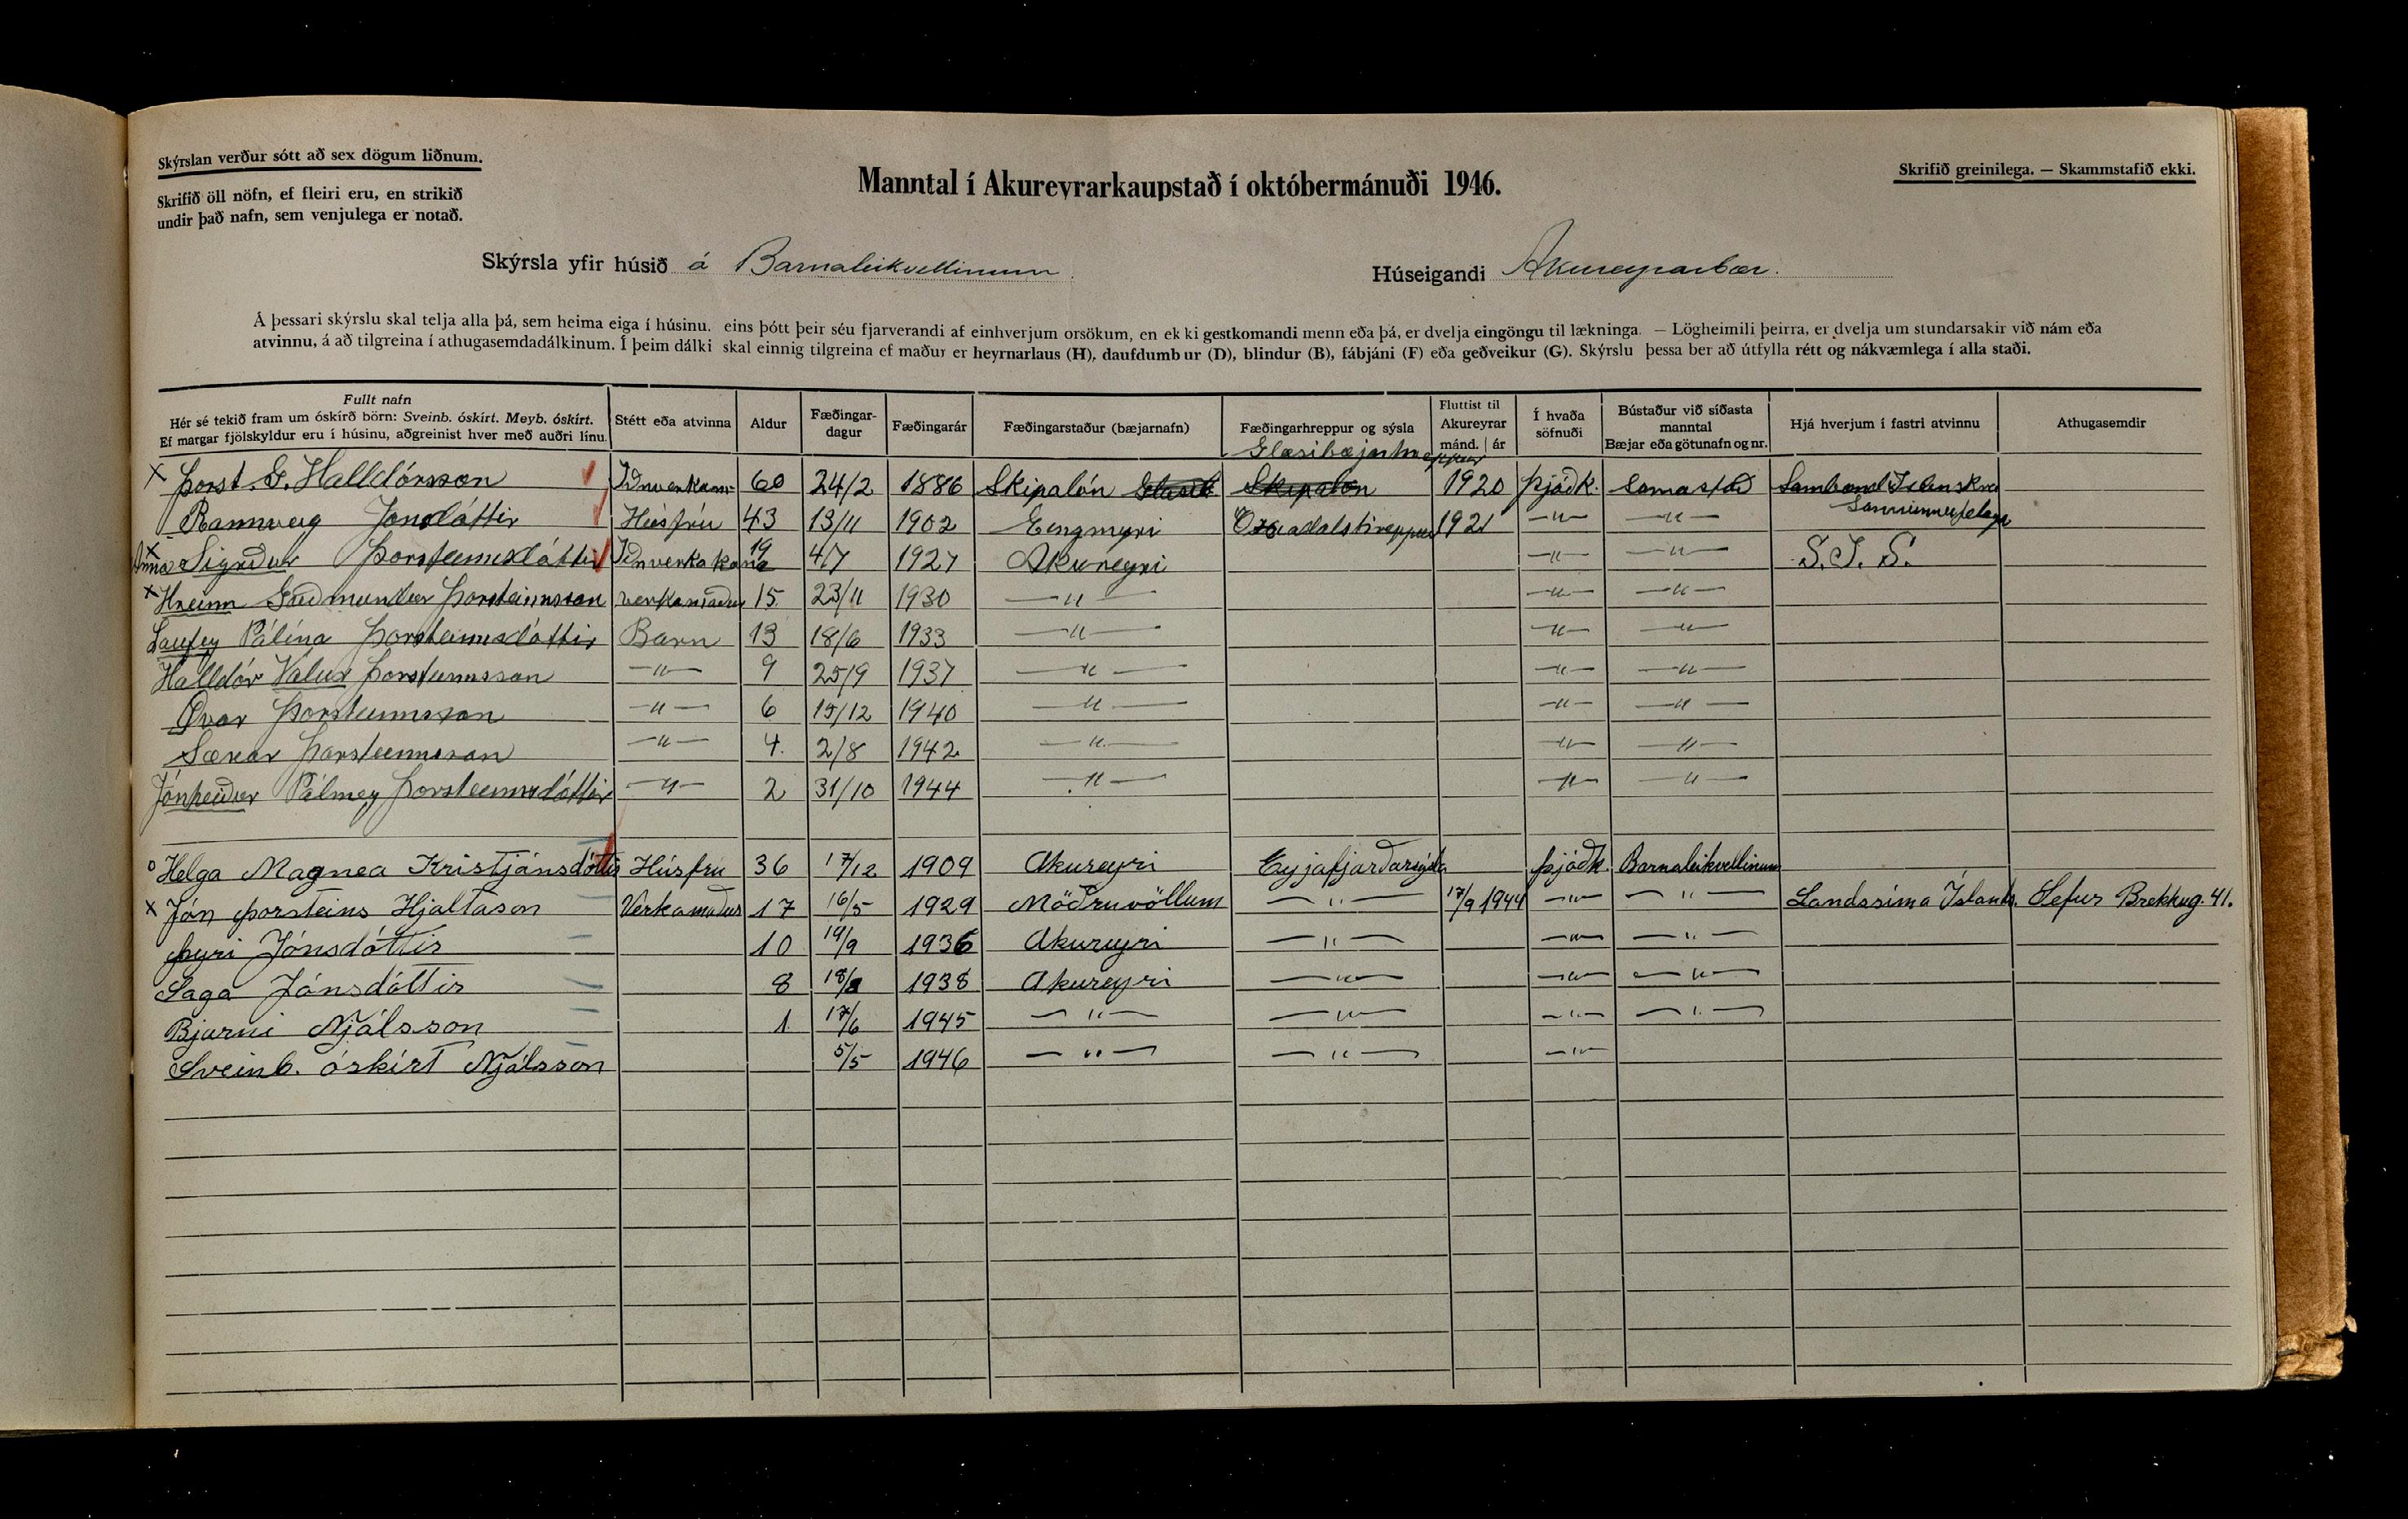 Skýrslan verður sótt að sex dögum liðnum.
Skrifið öll nöfn, ef fleiri eru, en strikið
undir það nafn, sem venjulega er notað.
Manntal í Akureyrarkaupstað í októbermánuði 1946.
Skrifið greinilega. — Skammstafið ekki.
Skýrsla yfir húsið á Barnaleikvellinum
Húseigandi Akureyrarbær.
Á þessari skýrslu skal telja alla þá, sem heima eiga í húsinu. eins þótt þeir séu fjarverandi af einhverjum orsökum, en ekki gestkomandi menn eða þá, er dvelja eingöngu til lækninga. — Lögheimili þeirra, er dvelja um stundarsakir við nám eða
atvinnu, á að tilgreina í athugasemdadálkinum. Í þeim dálki skal einnig tilgreina ef maður er heyrnarlaus (H), daufdumbur (D), blindur (B), fábjáni (F) eða geðveikur (G). Skýrslu þessa ber að útfylla rétt og nákvæmlega í alla staði.
Fullt nafn
Hér sé tekið fram um óskírð börn: Sveinb. óskírt. Meyb. óskírt.
Ef margar fjölskyldur eru í húsinu, aðgreinist hver með auðri línu.
Stétt eða atvinna
Aldur
Fæðingar-
dagur
Fæðingarár
Fæðingarstaður (bæjarnafn)
Fæðingarhreppur og sýsla
Fluttist til
Akureyrar
mánd. | ár
Í hvaða
söfnuði
Bústaður við síðasta
manntal
Bæjar eða götunafn og nr.
Hjá hverjum í fastri atvinnu
Athugasemdir
Glæsibæjarhreppur
x Þorst. G. Halldórsson Iðnverkam. 60 24/2 1886 Skipalón Glæsib Skipalón 1920 Þjóðk. Lomastað Samband Íslenskra
Samvinnufélaga
Rannveig Jónsdóttir Húsfrú 43 13/11 1902 Engmyri Öxnadalshreppur 1921 —"— —"—
x Anna Sigríður Þorsteinsdóttir Iðnverkakona 19 4/7 1927 Akureyri —"— —"— S.Í.S.
x Hreinn Guðmundur Þorsteinsson verkamaður 15 23/11 1930 —"— —"— —"—
Laufey Pálína Þorsteinsdóttir Barn 13 18/6 1933 —"— —"— —"—
Halldór Valur Þorsteinsson —"— 9 25/9 1937 —"— —"— —"—
Ævar Þorsteinsson —"— 6 15/12 1940 —"— —"— —"—
Sævar Þorsteinsson —"— 4. 2/8 1942 —"— —"— —"—
Jónheiður Pálmey Þorsteinsdóttir —"— 2 31/10 1944 —"— —"— —"—
o Helga Magnea Kristjánsdóttir Húsfrú 36 17/12 1909 Akureyri Eyjafjarðarsýsla Þjóðk. Barnaleikvellinum
x Jón Þorsteins Hjaltason Verkamaður 17 16/5 1929 Möðruvöllum —"— 17/9 1944 —"— —"— Landssíma Íslands. Sefur Brekkug. 41.
Þyri Jónsdóttir 10 19/9 1936 Akureyri —"— —"— —"—
Saga Jónsdóttir 8 1938 Akureyri —"— —"— —"—
Bjarni Njálsson 1 17/6 1945 —"— —"— —"— —"—
Sveinb. óskírt Njálsson 5/5 1946 —"— —"— —"—